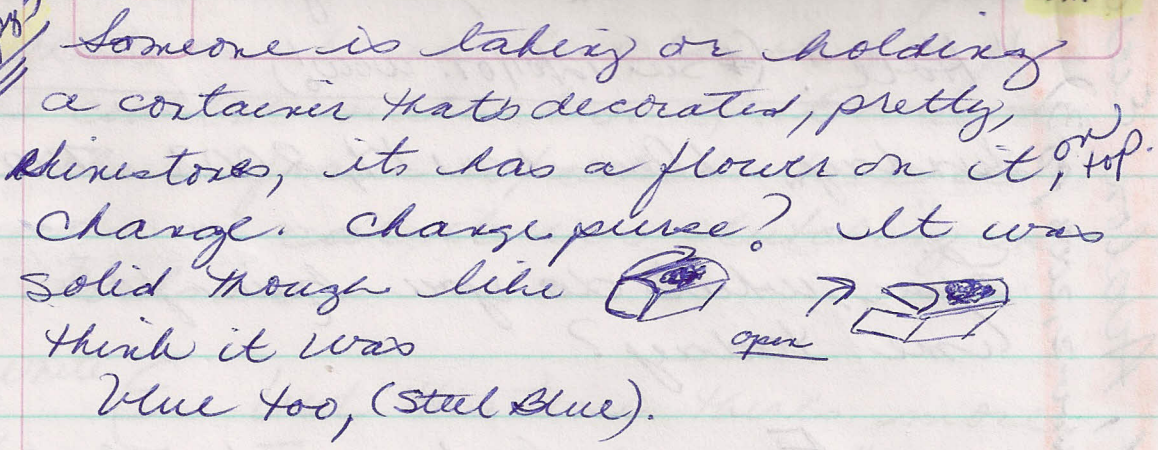 Someone is taking or holding
a container thats decorated, pretty,
rhinestones, its has a flower on it, on top.
Change. Change purse? It was
solid though like
open
think it was
blue too, (Steel Blue).